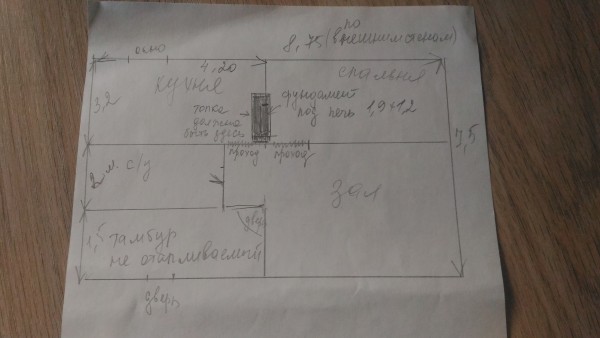 по
8,75 (внешним осям)
окно
4,20
кухня
спальня
3,2
топка
должна
быть здесь
фундамент
под печь 1,9×1,2
проход
проход
7,5
2 м. с/у
зал
дверь
1,5
тамбур
не отапливаемый
дверь